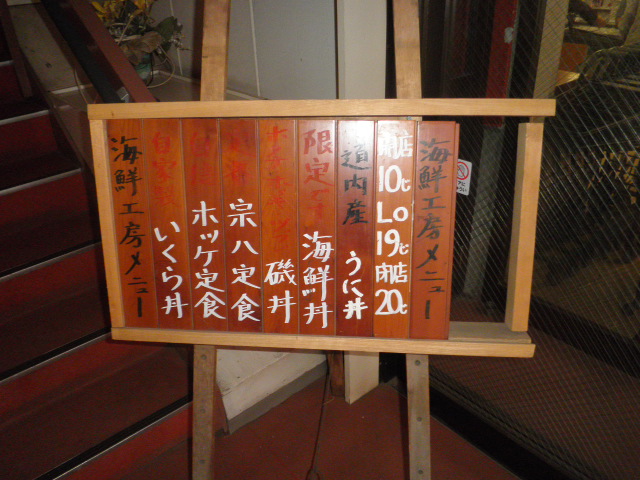 海鮮工房メニュー
開店10じLo19じ閉店20じ
道内産 うに丼
限定 海鮮丼
磯丼
宗八定食
ホッケ定食
自家製 いくら丼
海鮮工房メニュー